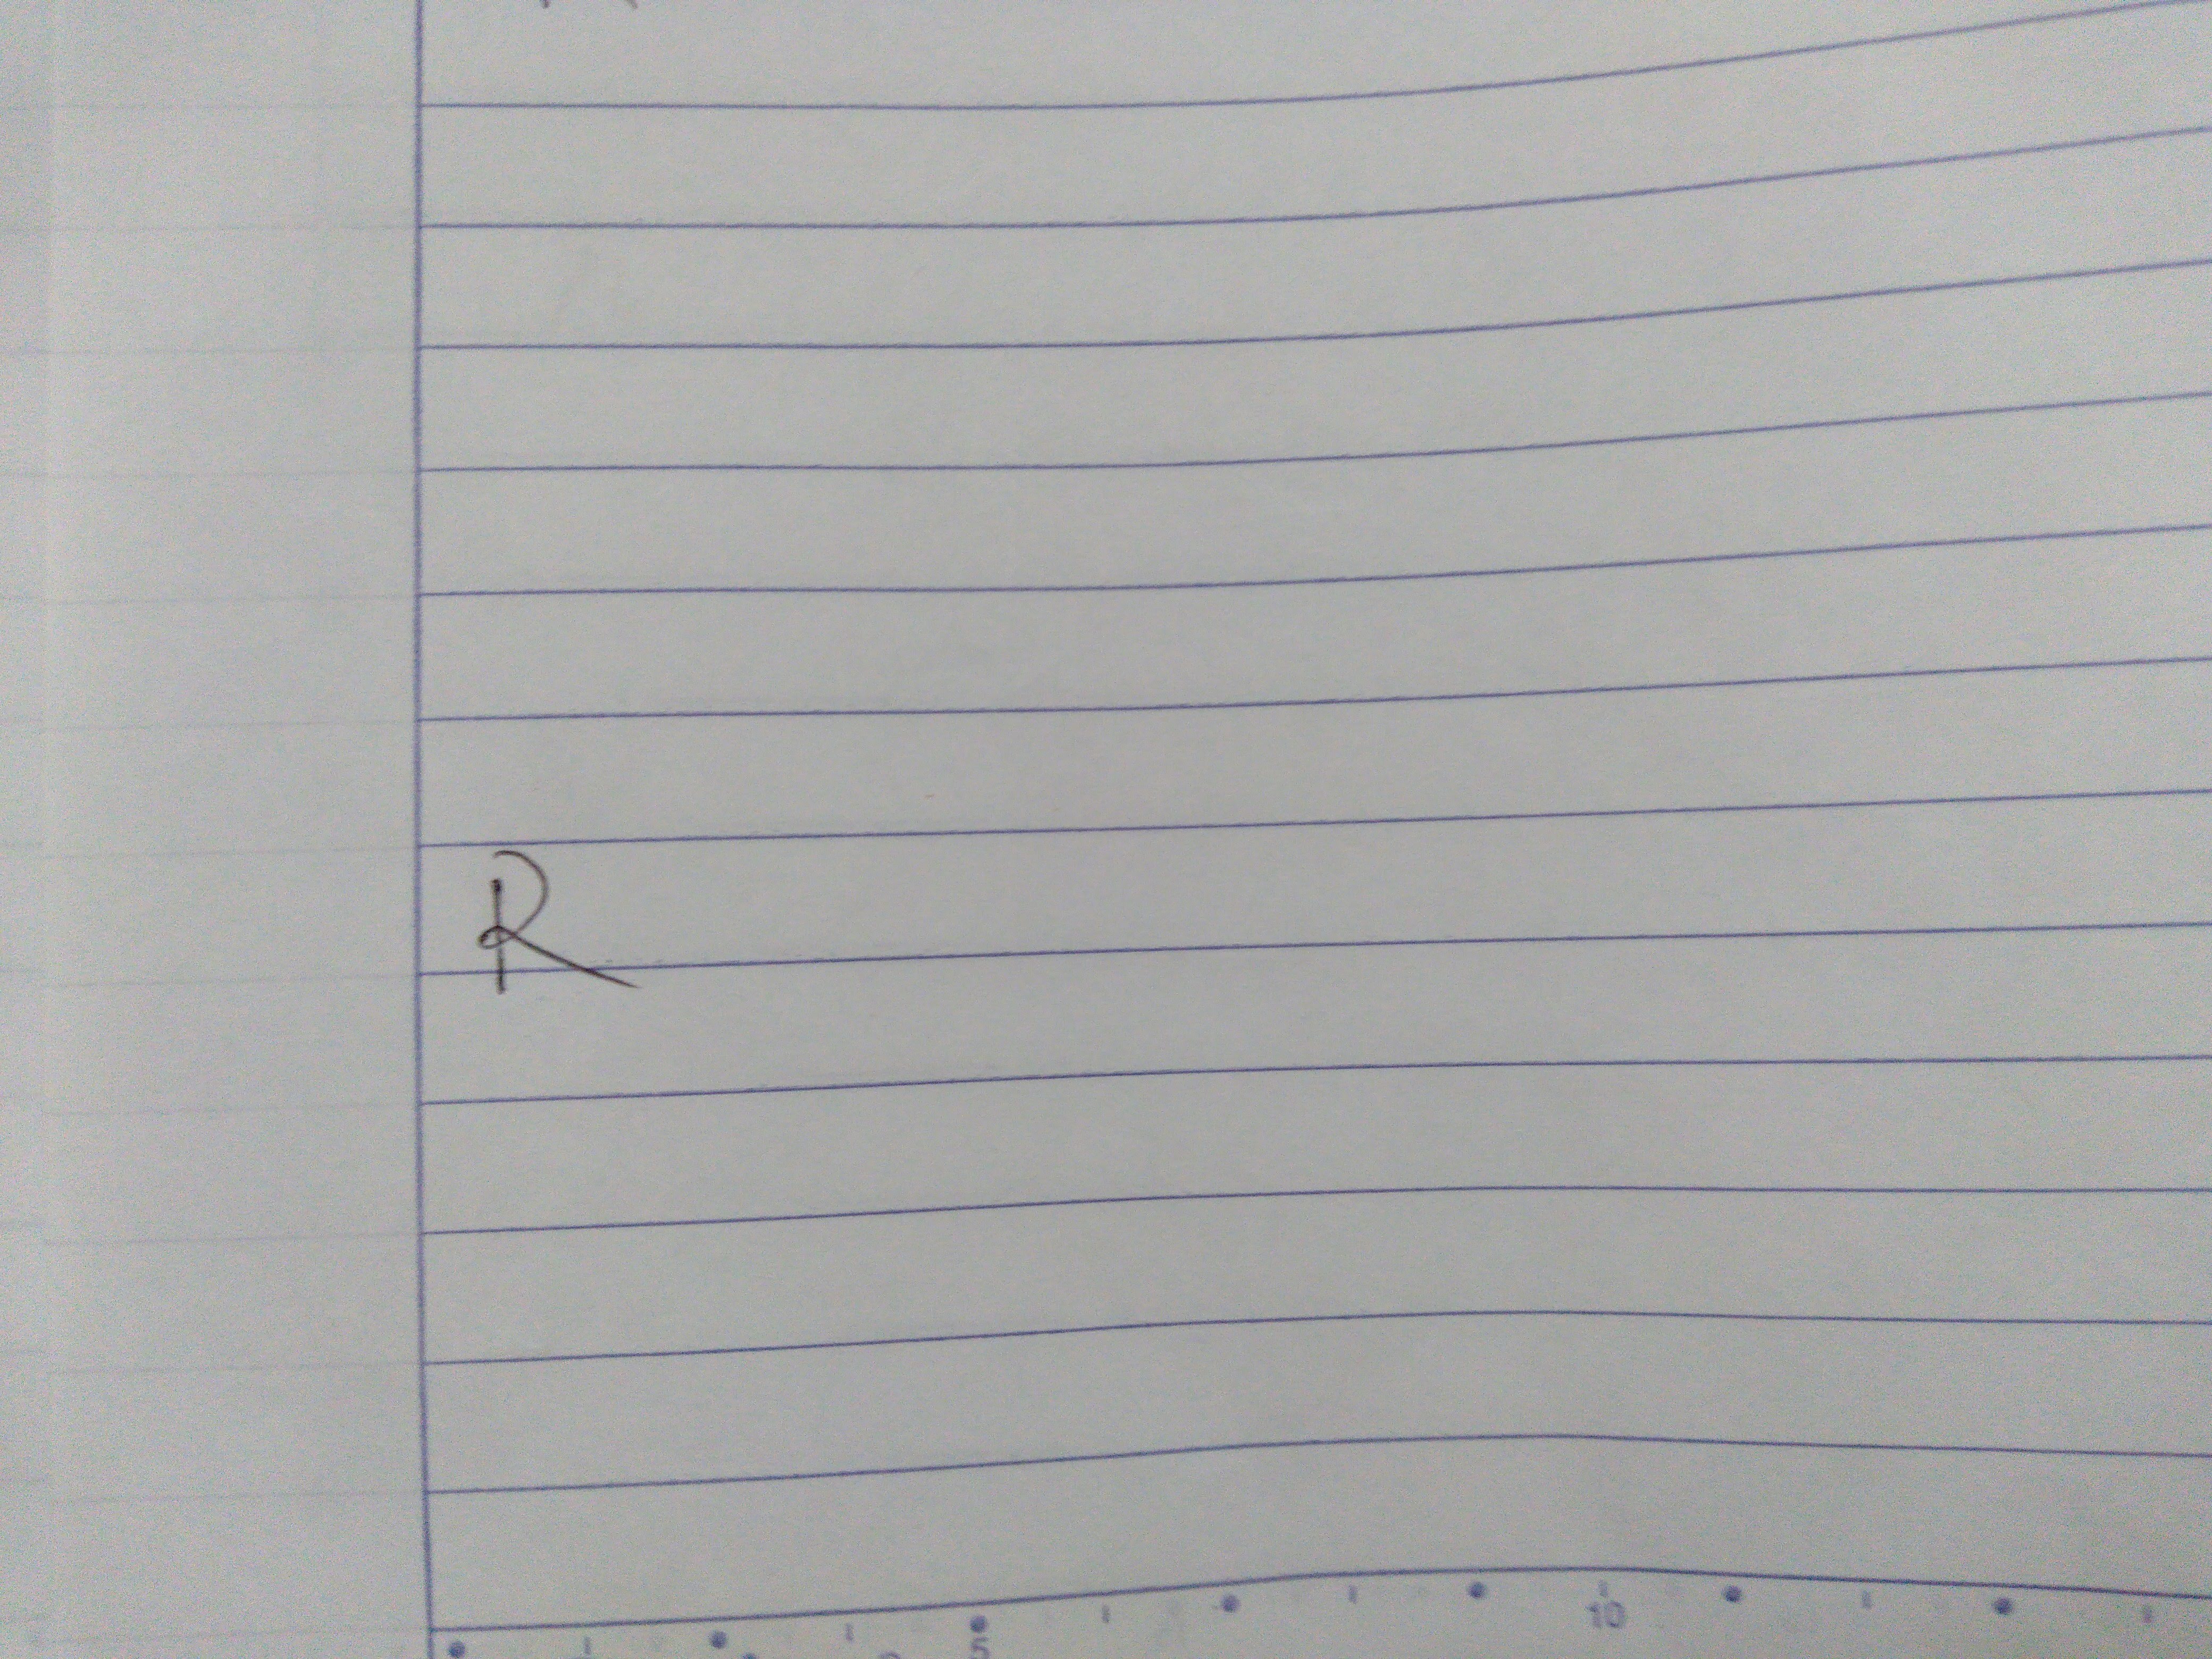 R
5 10